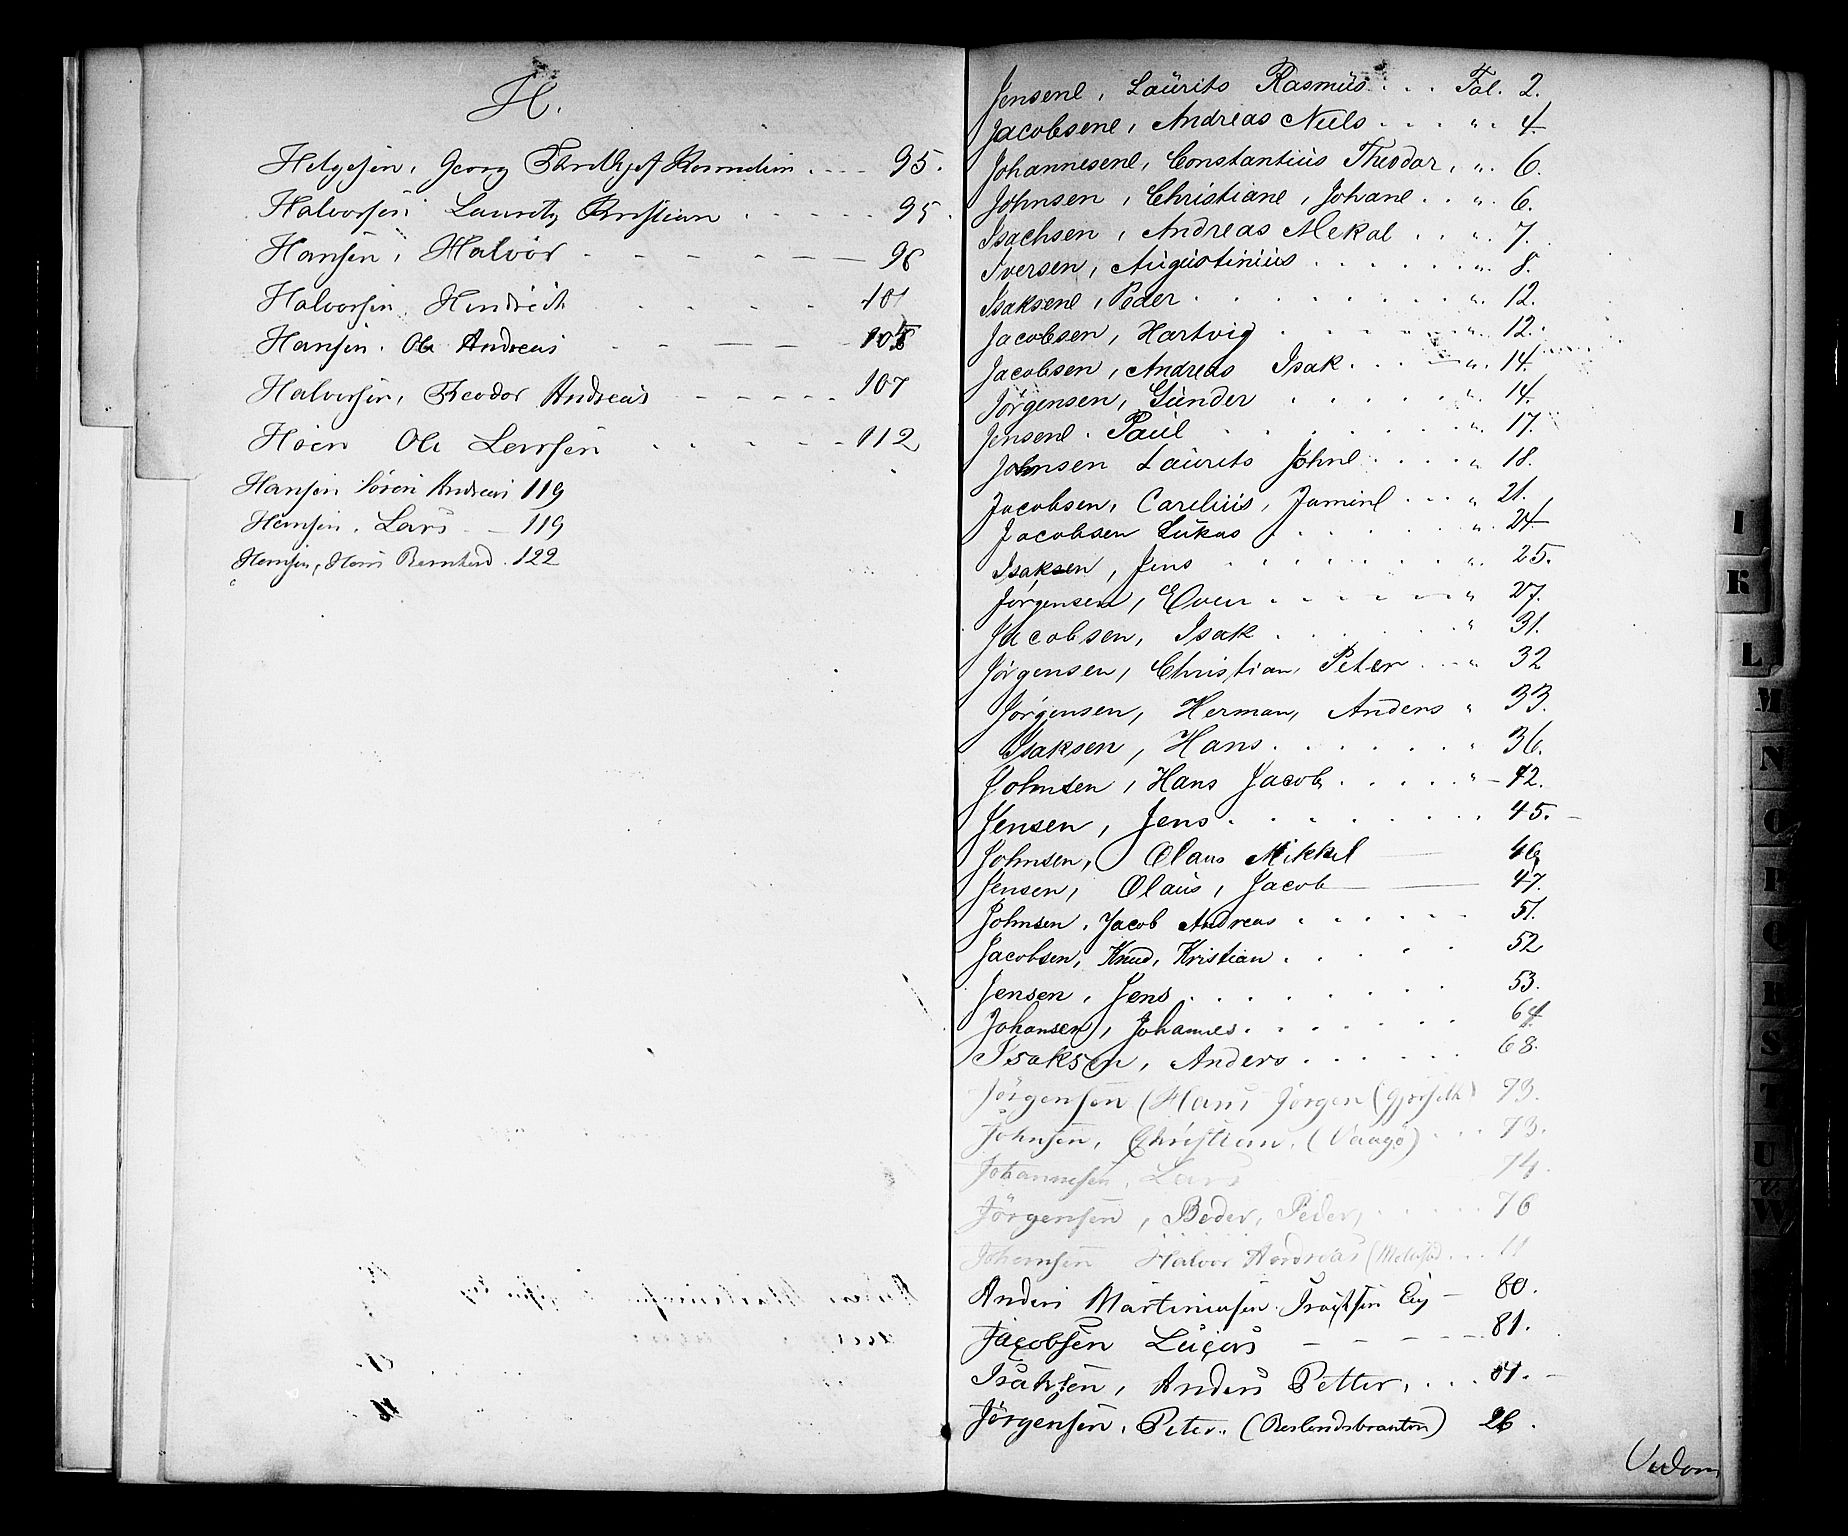 H.
Helgesen, Georg 95.
Halvorsen Lauritz Kristian 95.
Hansen, Halvor 98
Halvorsen, Hendrick 101
Hansen. Ole Andreas
Halvorsen, Theodor Andreas 107
Høen Ole Larsen 112
Hansen Sören Andreas 119
Hansen, Lars 119
Hansen, Hans Bernhard. 122
Jensene, Laurits Rasmus . . . Fol. 2.
Jacobsene, Andreas Neels . . . " . 4.
Johannesene, Constantius Theodor, " . 6.
Johnsen, Christiane, Johane . . " . 6.
Isachsen, Andreas Mekal . . " . 7.
Iversen, Augustinius . . . " . 8.
Isaksene, Peder . . . " . 12.
Jacobsen, Hartvig . . . " . 12.
Jacobsen, Andreas Isak . . . " . 14.
Jørgensen, Gunder . . . " . 14.
Jensene. Paul . . . " . 17.
Johnsen Laurits Johne . . . " 18.
Jacobsen, Carelius, Jamine . . . " 21.
Jacobsen Lukas . . . " . 24
Isaksen, Jens . . . " . 25.
Jørgensen, Even . . . " 27.
Jacobsen, Isak . . . " 31.
Jørgensen, Christian, Peter . . " 32
Jørgensen, Herman, Anders " 33.
Isaksen, Hans . . . " 36.
Johnsen, Hans Jacob . . . " 42.
Jensen, Jens . . . 45.
Johnsen, Olaus Mikkel 46
Jensen, Olaus, Jacob 47.
Johnsen, Jacob Andreas . . . 51.
Jacobsen, Knud, Kristian . . . 52
Jensen, Jens . . . 53.
Johansen, Johannes . . . 64
Isaksen, Anders . . . 68.
Jørgensen (Hans Jørgen 73.
Johnsen, Christian, (Vaagø) . . . 73.
Johannesen, Lars 74.
Jørgensen, Beder, Peder, . . . 76
Johansen Halvor Andreas
Anders Martiniusen. 80.
Jacobsen Lucas 81.
Isaksen, Anders Petter, . . . 84.
Jørgensen, Peter. 26.
I
K
L
M
N
O
P
Q
R
S
T
U
W